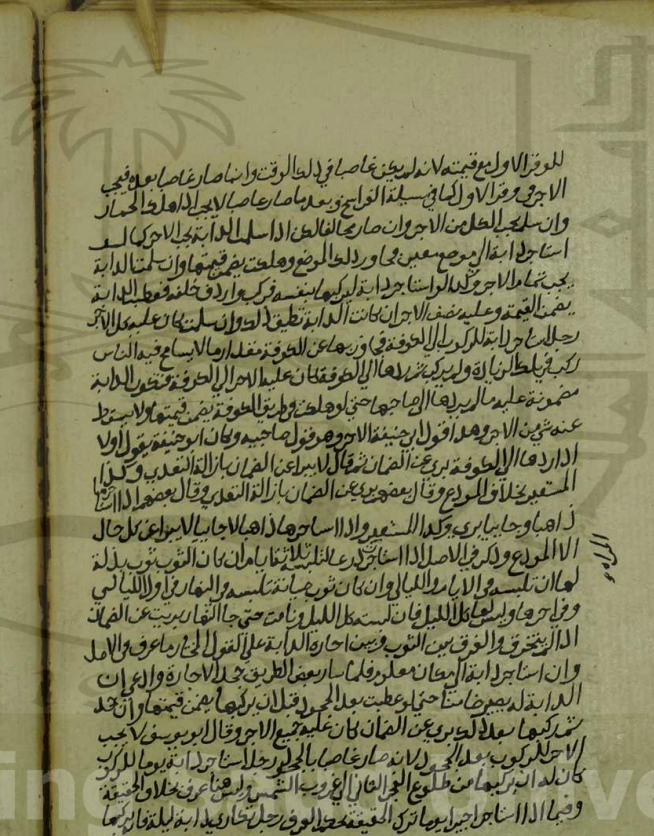 للوقر الاول مع قيمته لانه لم يكن غاصبا في ذلك الوقت وانما صار غاصبا بعده فيجب
الاجر في وقر الاول كما في مسيلة وبعد ما صار غاصبا لا يجب اذا هلك الحمار
وان سلم يجب الكل من الاجر وان صار مخالفا لكن اذا سلمت الدابة يجب الاجر كما لو
استاجر دابة الى موضع معين فجاوز ذلك الموضع وهلكت يضمن قيمتها وان سلمت الدابة
يجب تمام الاجر وكذا لو استاجر دابة ليركبها بنفسه فركب واردف خلفه فعطبت الدابة
يضمن القيمة وعليه نصف الاجر ان كانت الدابة تطيق ذلك وان سلمت كان عليه كل الاجر
رجل استاجر دابة للركوب الى الكوفة فجاوز بها عن الكوفة مقدار ما لا يسامح فيه الناس
ركب في تلك الزيادة ولم يركب ثم ردها الى الكوفة كان عليه الاجر الى الكوفة فتكون الدابة
مضمونة عليه ما لم يردها الى صاحبها حتى لو هلكت في طريق الكوفة يضمن قيمتها ولا يسقط
عنه شي من الاجر وهذا قول ابي حنيفة الاخر وهو قول صاحبيه وكان ابو حنيفة يقول اولا
اذا ردها الى الكوفة بري عن الضمان ثم قال لا يبرا عن الضمان بازالة التعدي وكذا
المستعير بخلاف المودع وقال بعضهم يبرى عن الضمان بازالة التعدي وقال بعضهم اذا استاجرها
ذاهبا وجايبا يبرى وكذا المستعير واذا استاجرها ذاهبا لا جايبا لا يبرا عن كل حال
الا المودع وذكر في الاصل اذا استاجرت درعا لتلبسه ثلاثة ايام ان كان الثوب ثوب بذلة
لها ان تلبسه في الايام والليالي وان كان ثوب صيانة تلبسه في النهار وفي اول الليالي
وفي اخرها وليس لها كل الليل فان لبسته كل الليل ونامت حتى جا النهار بريت عن الضمان
اذا لم ينخرق والفرق بين الثوب وبين اجارة الدابة على القول المختار ما عرف في الاصل
وان استاجر دابة الى مكان معلوم فلما سار بعض الطريق جحد الاجارة وادعى ان
الدابة له يصير ضامنا حتى لو عطبت بعد الجحود قبل ان يركبها يضمن قيمتها وان جحد
ثم ركبها بعد ذلك يبرى عن الضمان كان عليه جميع الاجر وقال ابو يوسف لا يجب
الاجر للركوب بعد الجحود لانه صار غاصبا بالجحود رجل استاجر دابة يوما للركوب
كان له ان يركبها من طلوع الفجر الثاني الى غروب الشمس وليس هنا عرف بخلاف الحقيقة
وفيما اذا استاجر اجيرا يوما ترك الحقيقة الفرق رجل تكارى دابة ليلة فان ركبها
المراة